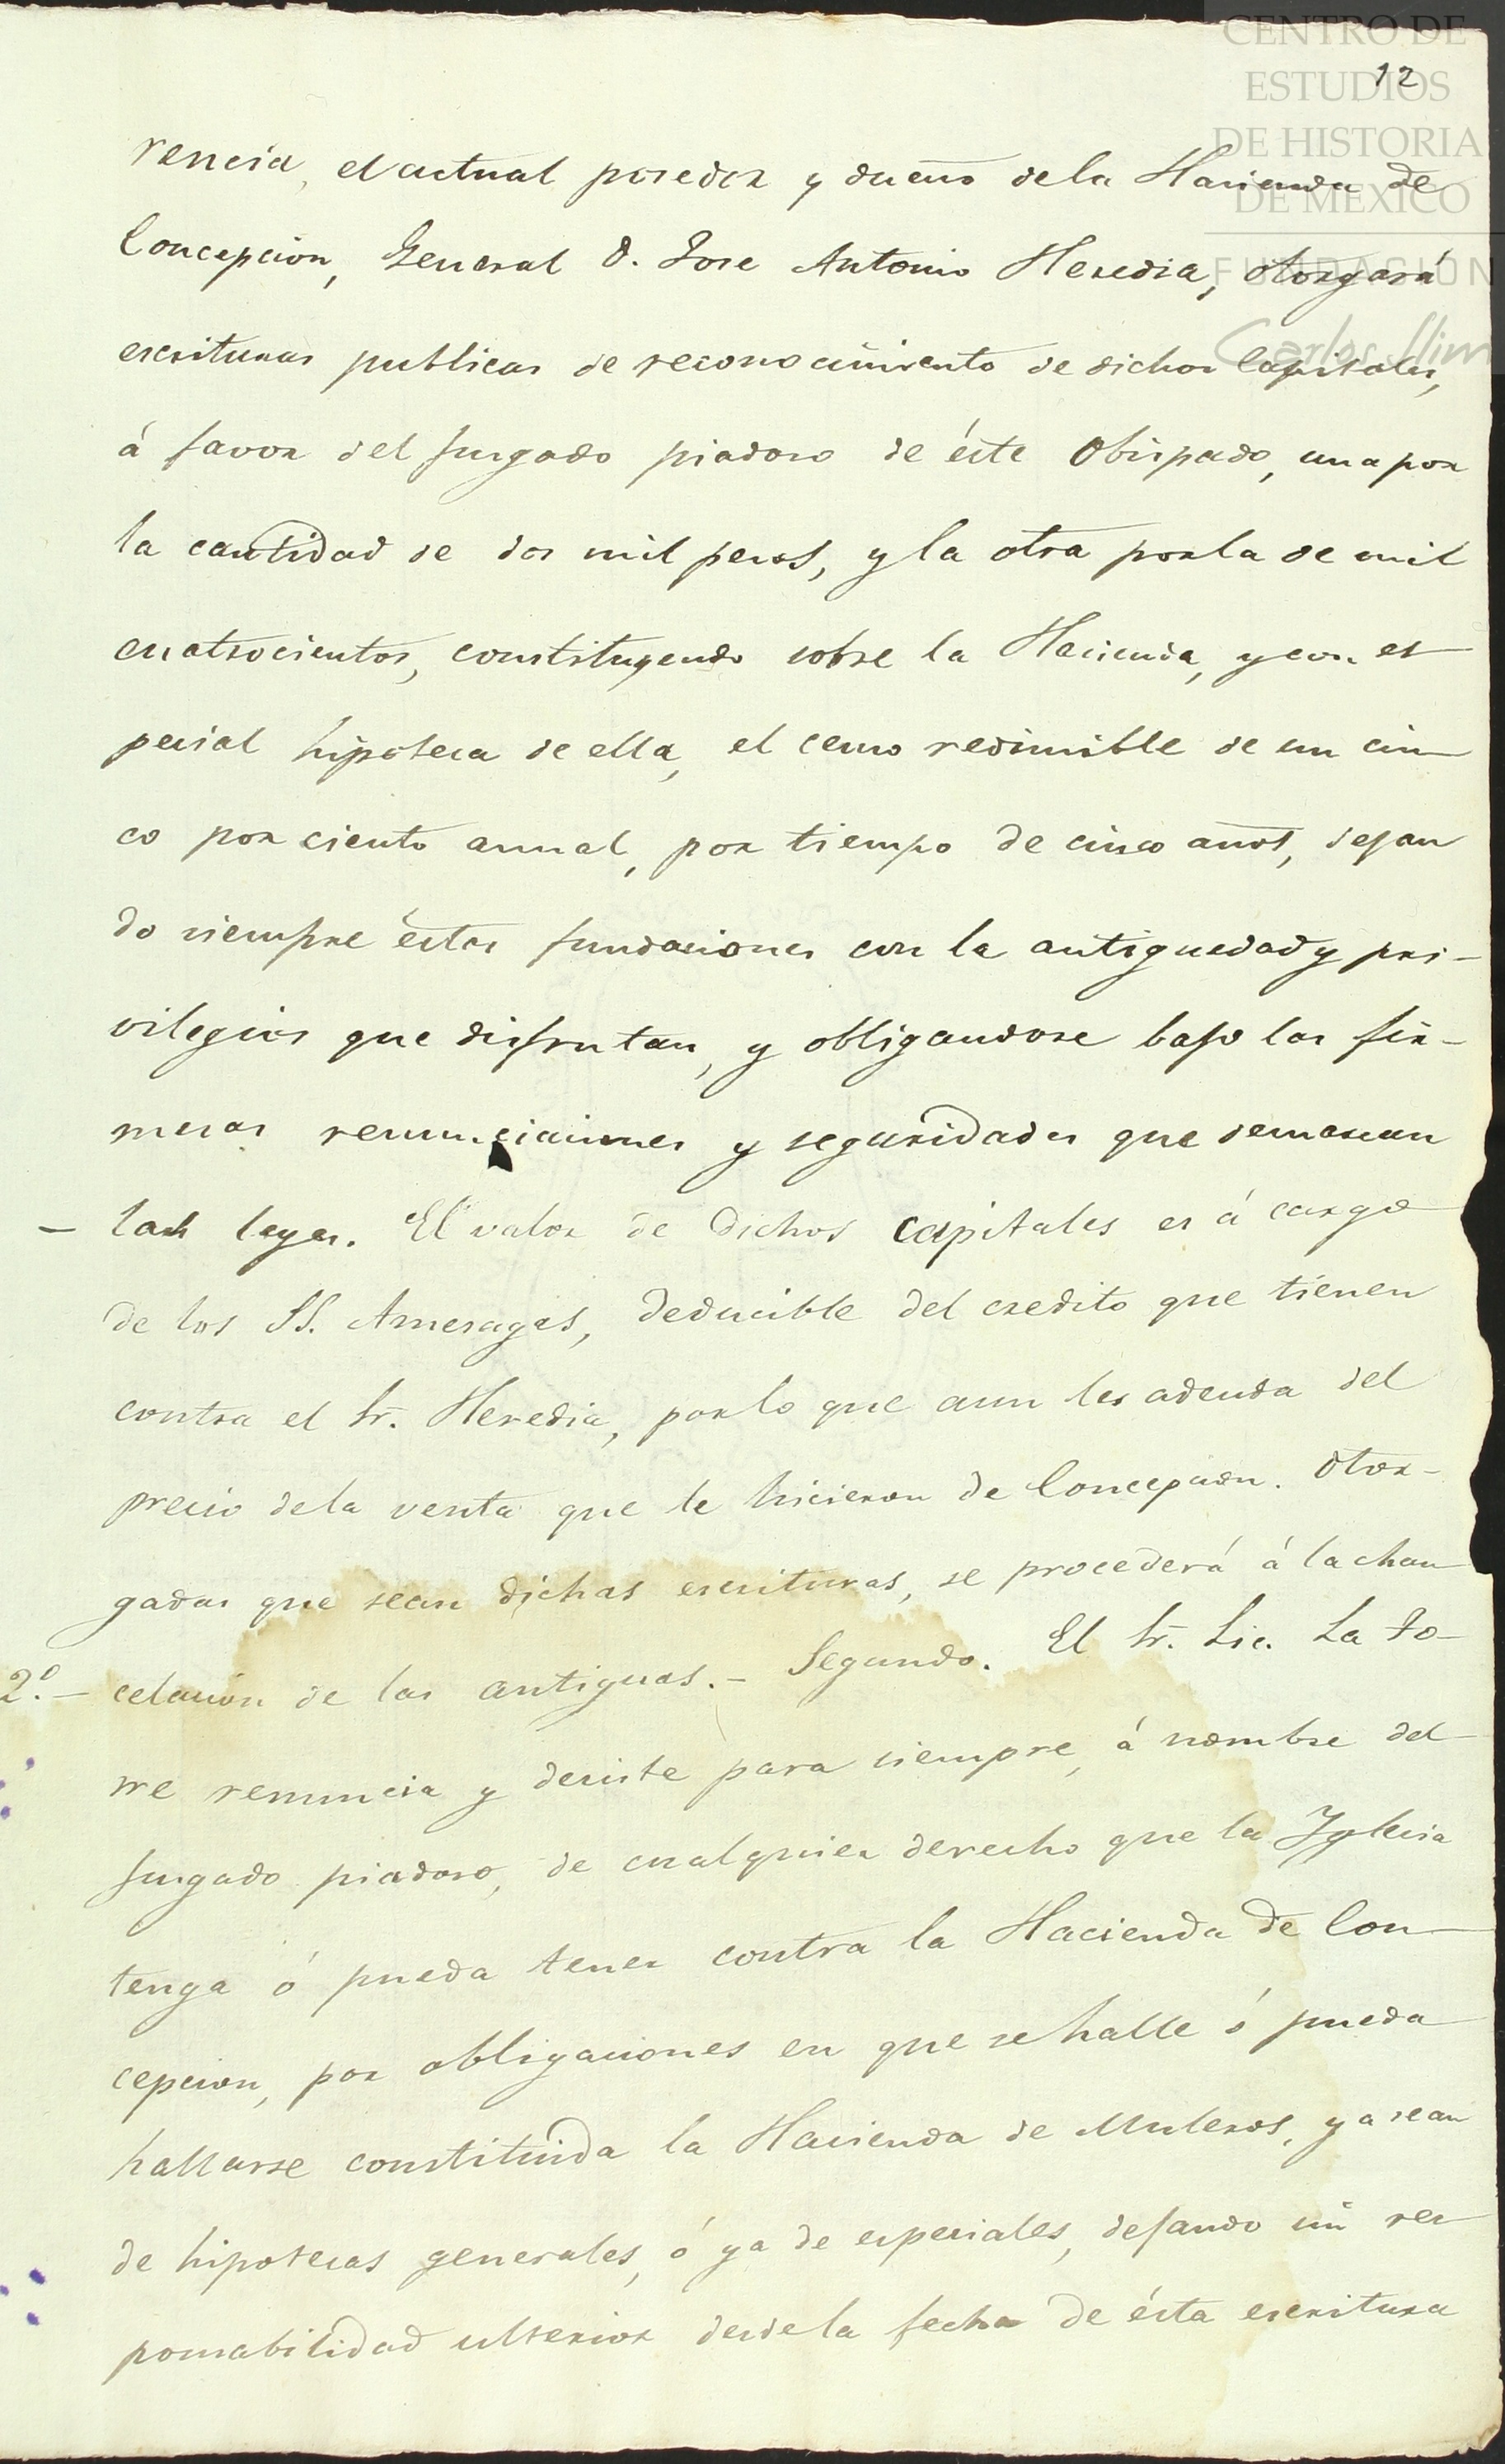 CENTRO DE
ESTUDIOS
DE HISTORIA
DE MEXICO
FUNDACIÓN
Carlos Slim
12
rencia, el actual poseedor y dueño dela Hacienda de
Concepcion, General D. Jose Antonio Heredia, otorgará
escrituras publicas de reconocimiento de dichos Capitales,
á favor del Jusgado piadoso de éste Obispado, una por
la cantidad de dos mil pesos, y la otra por la de mil
cuatrocientos, constituyendo sobre la Hacienda, y con es
pecial hipoteca de ella, el censo redimible de un cin
co por ciento annal, por tiempo de cinco años, dejan
do siempre éstas fundaciones con la antiguedad y pri-
vilegios que disfrutan, y obligandose bajo las fir-
mesas renunciaciones y seguridades que demarcan
- las leyes. El valor de dichos capitales es á cargo
de los SS. Amesagas, deducible del credito que tienen
contra el Sr. Heredia, por lo que aun les adeuda del
precio dela venta que le hicieron de Concepcion. Otor-
gadas que sean dichas escrituras, se procederá á la chan
2.º- celacion de las antiguas.- Segundo. El Sr. Lic. La To-
rre renuncia y desiste para siempre, á nombre del
Jusgado piadoso, de cualquier derecho que la Yglesia
tenga ó pueda tener contra la Hacienda de Con
cepcion, por obligaciones en que se halle ó pueda
hallarse constituida la Hacienda de Muleros, ya sean
de hipotecas generales, ó ya de especiales, dejando sin res
ponsabilidad ulterior desde la fecha de ésta escritura